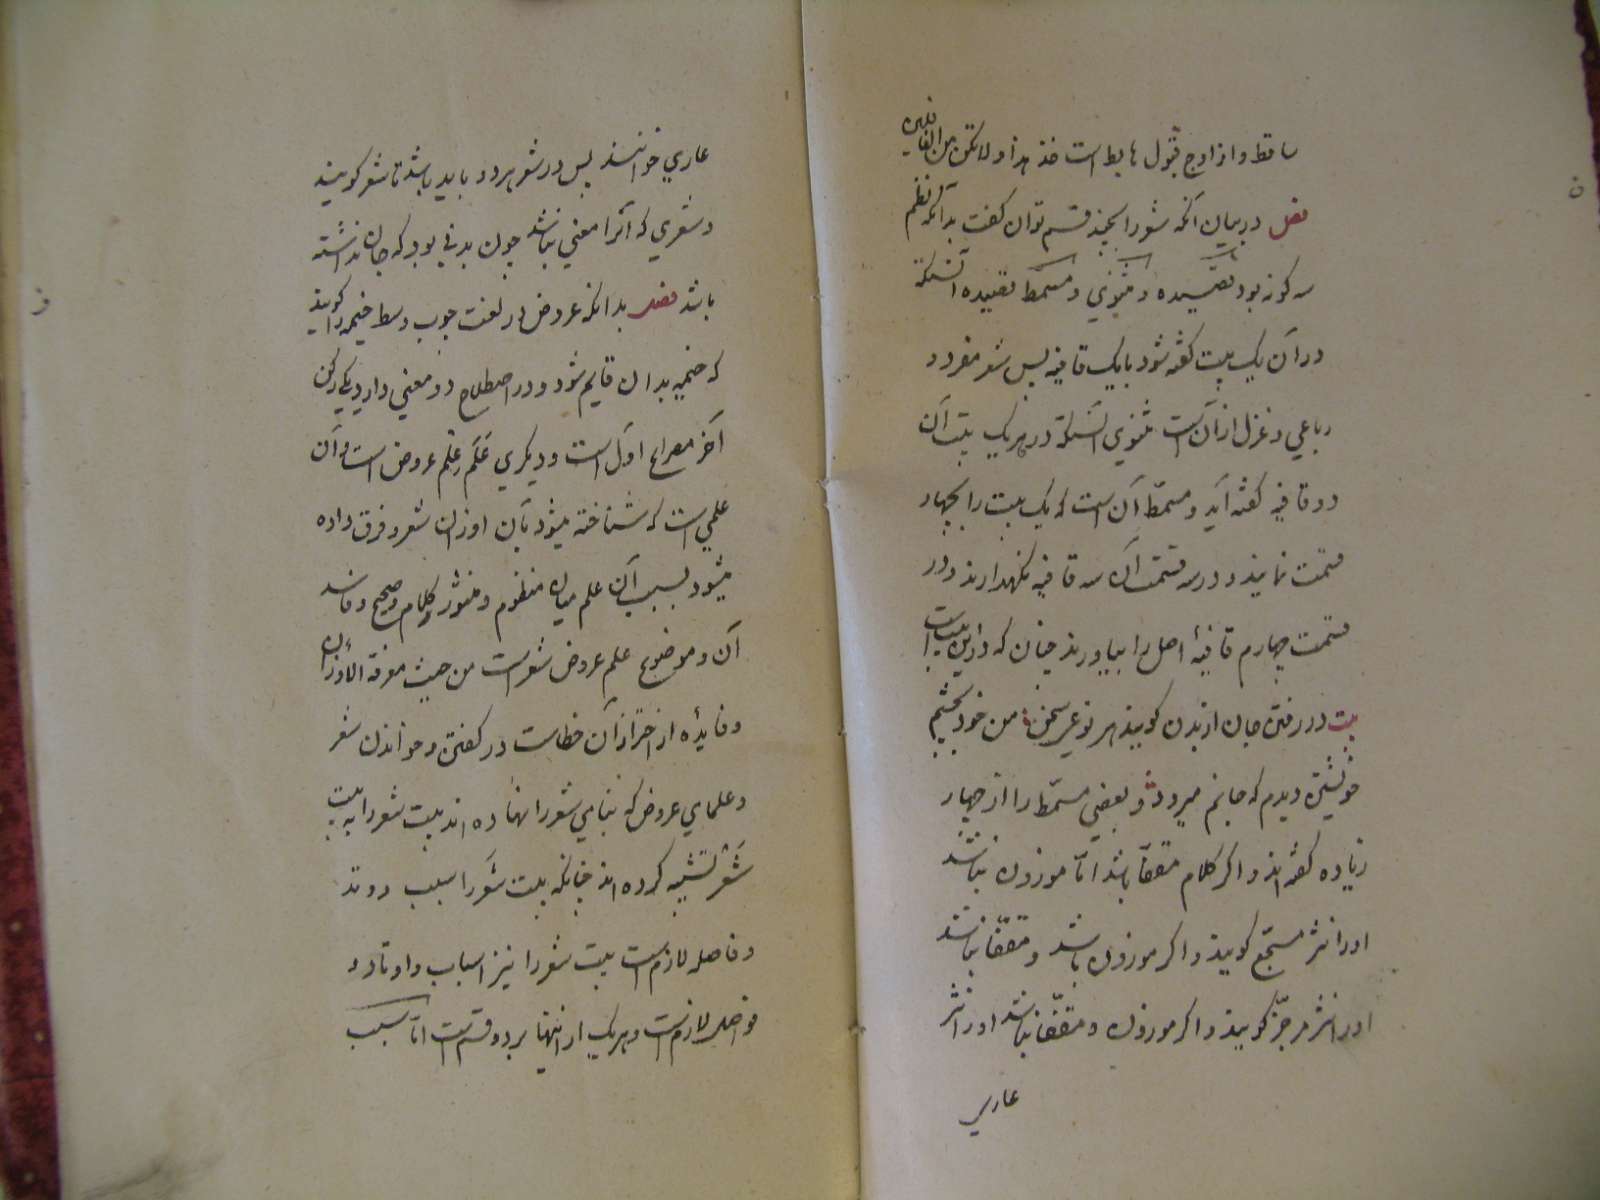 ساقط و از اوج قبول هابط است خذ هذا و لا تکن من الغافلین
فصل در بیان آنکه شعر را بچند قسم توان گفت بدانکه نظم
سه گونه بود قصیده و مثنوی و مسمط قصیده آنستکه
در آن یک بیت گفته شود با یک قافیه پس شعر مفرد و
رباعی و غزل از آن است مثنوی آنستکه در هر یک بیت آن
دو قافیه گفته آید و مسمّط آن است که یک بیت را بچهار
قسمت نمایند و در سه قسمت آن سه قافیه نکهدارند و در
قسمت چهارم قافیهٔ اصل را بیاورند چنان که در این بیت است
بیت در رفتن جان از بدن کویند هر نوعی سخن من خود بچشم
خویشتن دیدم که جانم میرود و بعضی مسمّط را از چهار
زیاده گفته اند و اکر کلام مقفّا باشد امّا موزون نباشد
او را نثر مسجّع کویند و اکر موزون باشد و مقفّا نباشد
او را نثر مرجّز کویند و اکر موزون و مقفّا نباشد او را نثر
عاری
عاری خوانند پس در شعر هر دو باید باشد تا شعر کویند
و شعری که آنرا معنی نباشد چون بدنی بود که جان نداشته
باشد فصل بدانکه عروض در لغت چوب وسط خیمه را کویند
که خیمه بدان قایم شود و در اصطلاح دو معنی دارد یکی رکن
آخر مصراع اوّل است و دیکری عَلَم علم عروض است و آن
علمی است که شناخته میشود بآن اوزان شعر و فرق داده
میشود بسبب آن علم میان منظوم و منثور کلام و صحیح و فاسد
آن و موضوع علم عروض شعر است من حیث معرفة الأوزان
و فایدهٔ او احتراز آن خطاست در کفتن و خواندن شعر
و علمای عروض که بنای شعر را نهاده اند بیت شعر را به بیت
شَعْر تشبیه کرده اند چنانکه بیت شَعر را سبب و وتد
و فاصله لازم است بیت شعر را نیز اسباب و اوتاد و
فواصل لازم است و هر یک از اینها بر دو قسم است امّا سبب